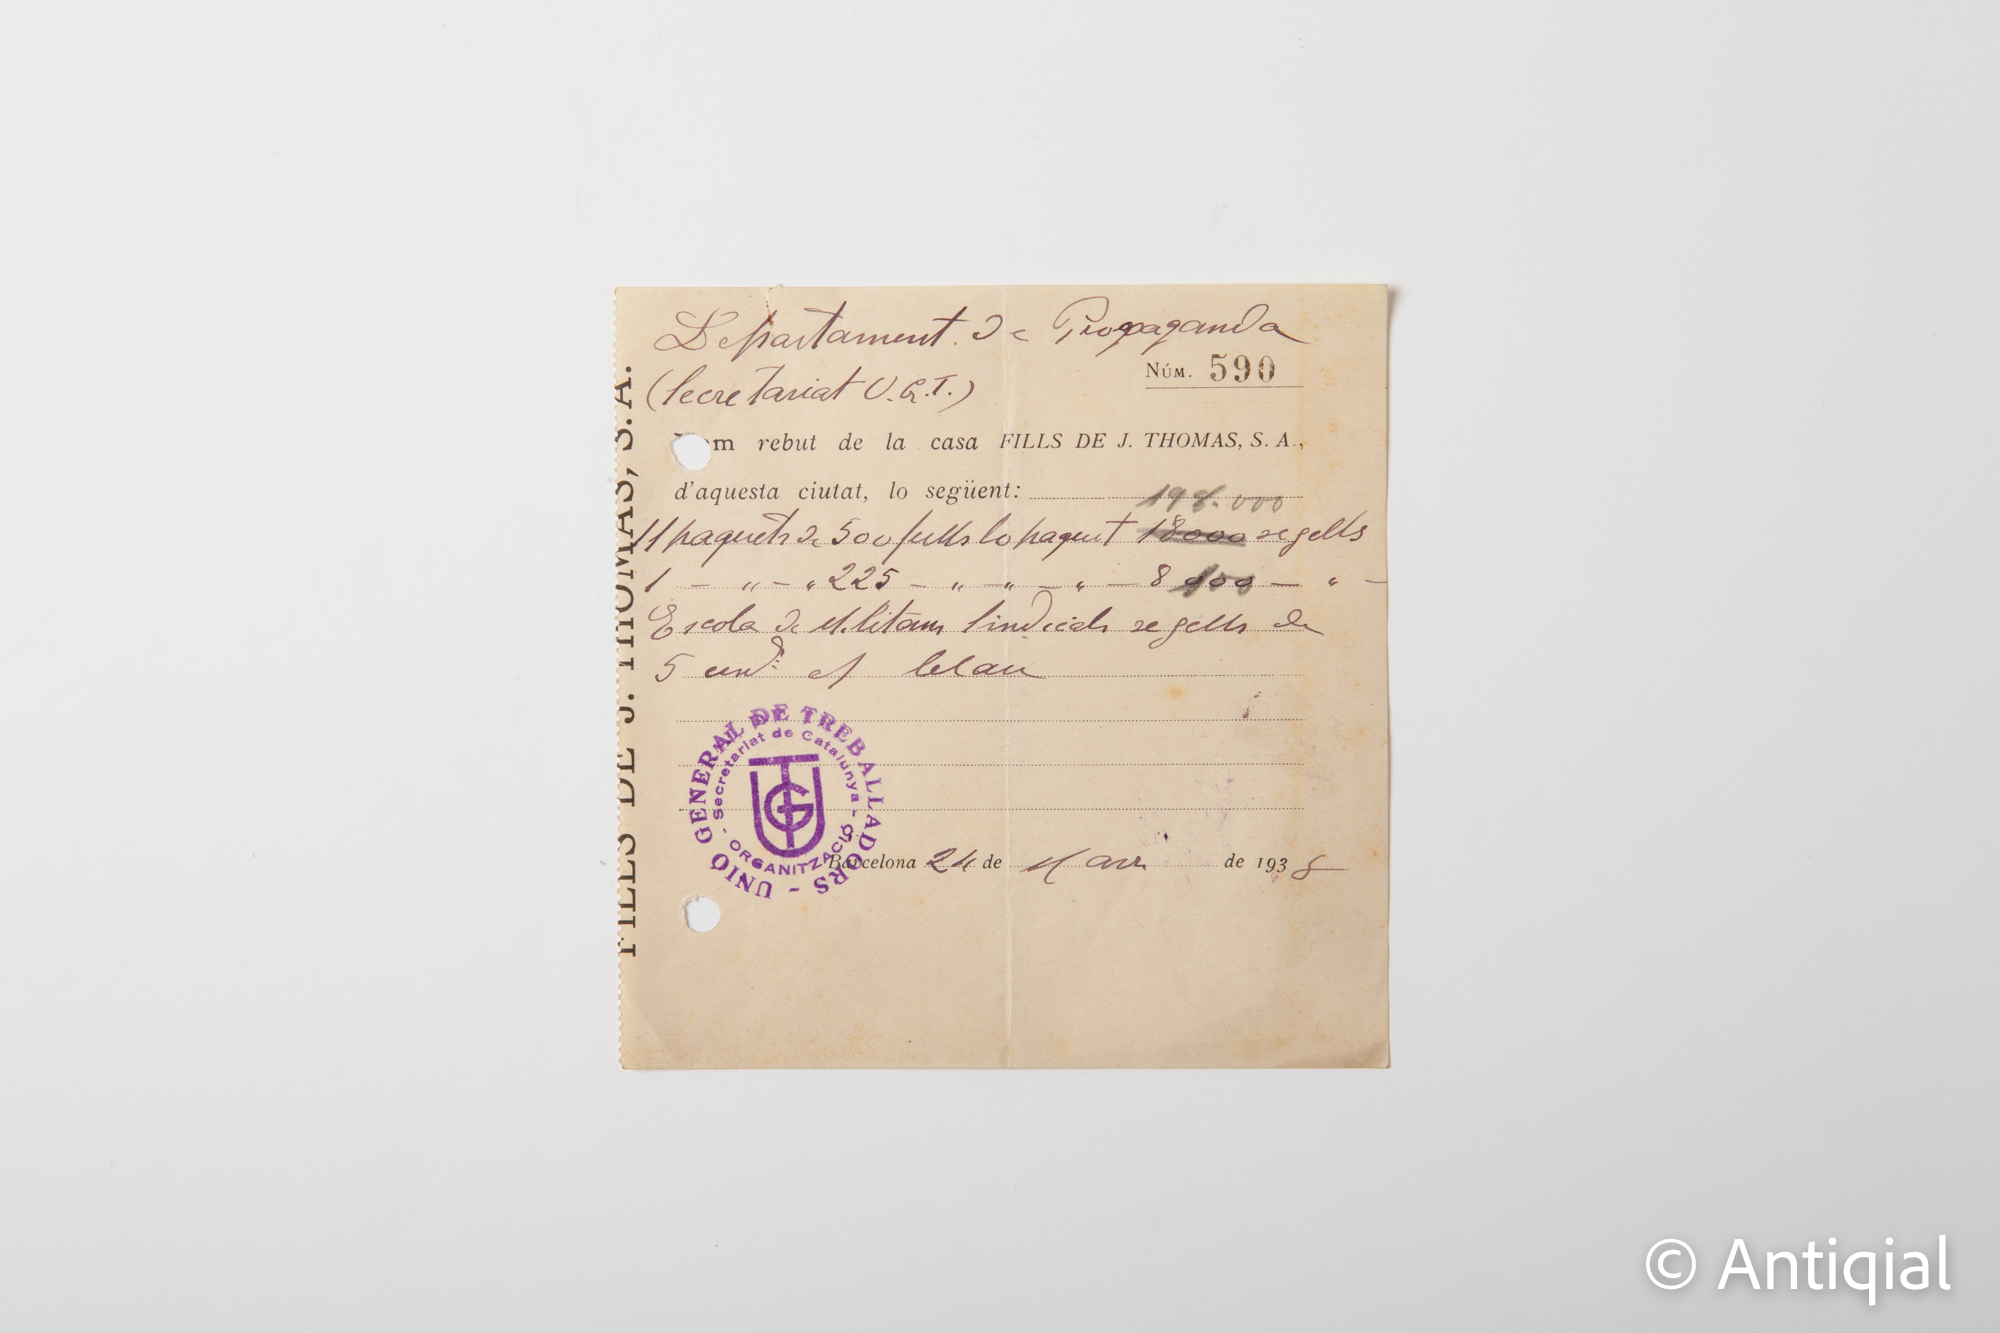 Departament de Propaganda
NÚM. 590
(Secretariat U.G.T.)
m rebut de la casa FILLS DE J. THOMAS, S. A.,
d'aquesta ciutat, lo següent: 198.000
11 paquets de 500 fulls lo paquet 18000 segells
1 — " — " 225 — " — " — " — 8 100 — " —
Escola de Militans Sindicals segells de
5 cén
UNIÓ GENERAL DE TREBALLADORS -
- Secretariat de Catalunya -
ORGANITZACIÓ
UGT
Barcelona 24 de Mars de 1938
FILLS DE J. THOMAS, S. A.
© Antiqial